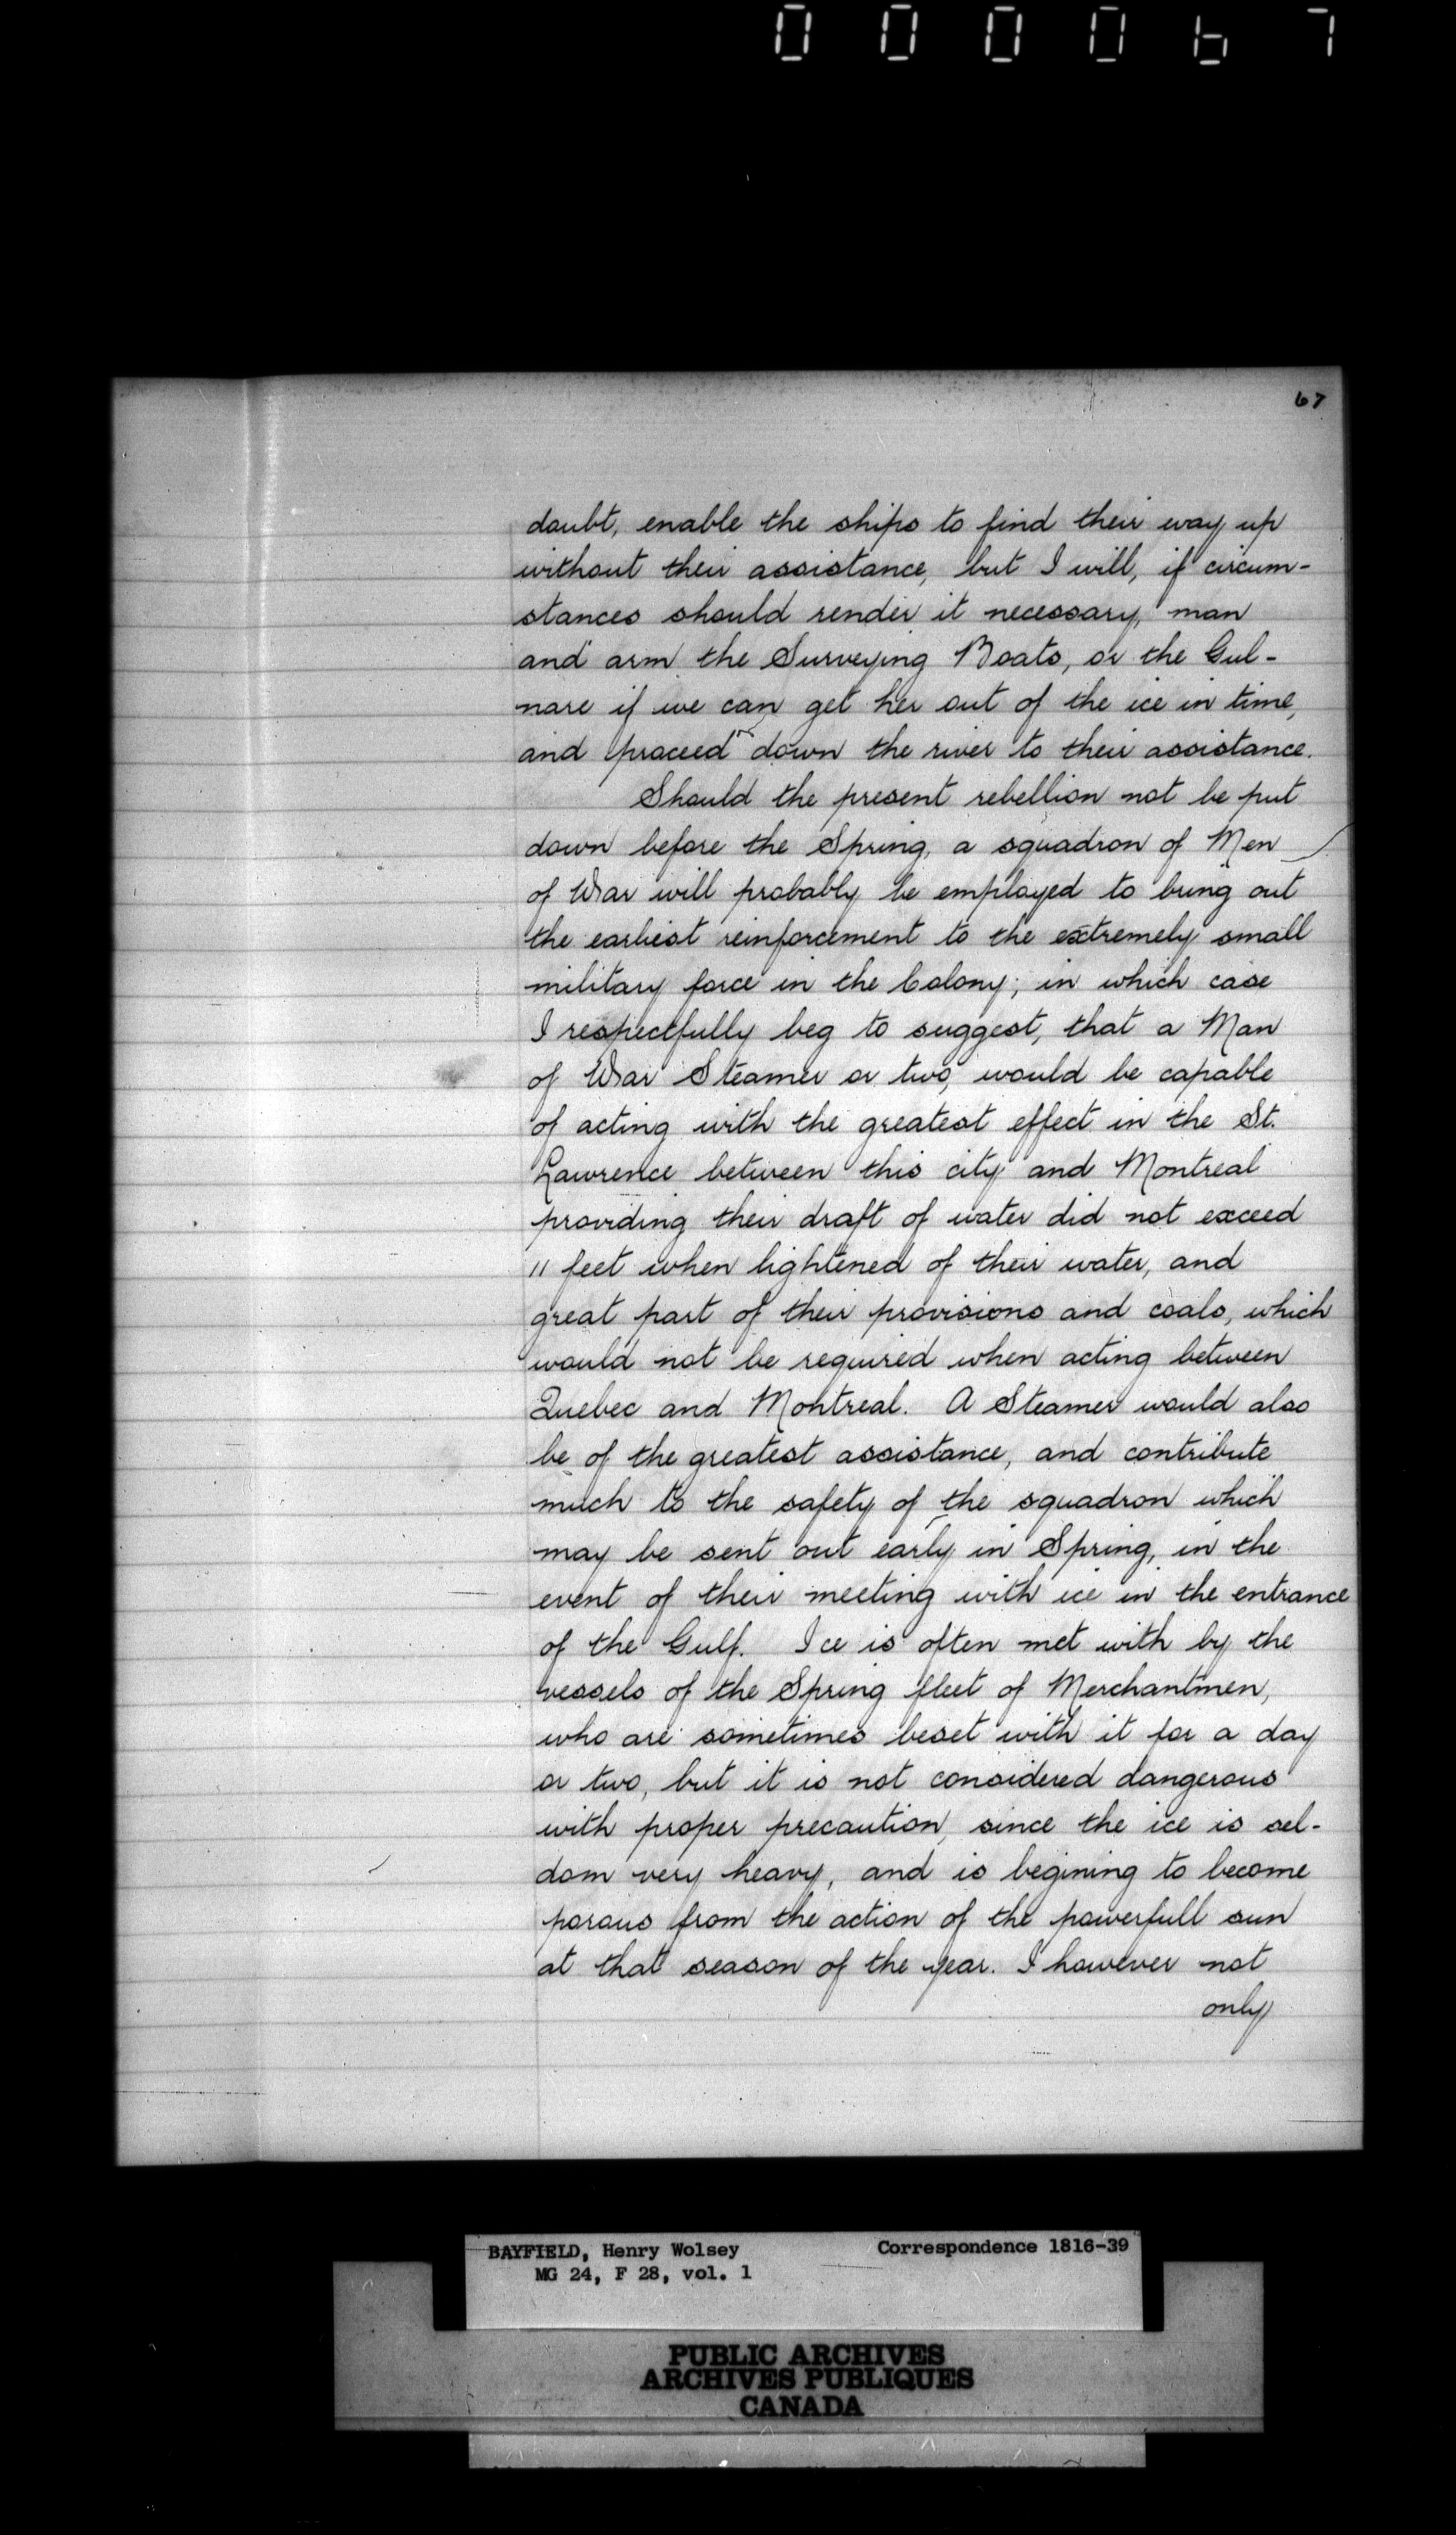 000067
67
doubt, enable the ships to find their way up
without their assistance, but I will, if circum-
stances should render it necessary, man
and arm the Surveying Boats, or the Gul-
nare if we can get her out of the ice in time,
and proceed down the river to their assistance.
Should the present rebellion not be put
down before the Spring, a squadron of Men
of War will probably be employed to bring out
the earliest reinforcement to the extremely small
military force in the Colony; in which case
I respectfully beg to suggest, that a Man
of War Steamer or two, would be capable
of acting with the greatest effect in the St.
Lawrence between this city and Montreal
providing their draft of water did not exceed
11 feet when lightened of their water, and
great part of their provisions and coals, which
would not be required when acting between
Quebec and Montreal. A Steamer would also
be of the greatest assistance, and contribute
much to the safety of the squadron which
may be sent out early in Spring, in the
event of their meeting with ice in the entrance
of the Gulf. Ice is often met with by the
vessels of the Spring fleet of Merchantmen,
who are sometimes beset with it for a day
or two, but it is not considered dangerous
with proper precaution, since the ice is sel-
dom very heavy, and is begining to become
porous from the action of the powerfull sun
at that season of the year. I however not
only
BAYFIELD, Henry Wolsey Correspondence 1816-39
MG 24, F 28, vol. 1
PUBLIC ARCHIVES
ARCHIVES PUBLIQUES
CANADA